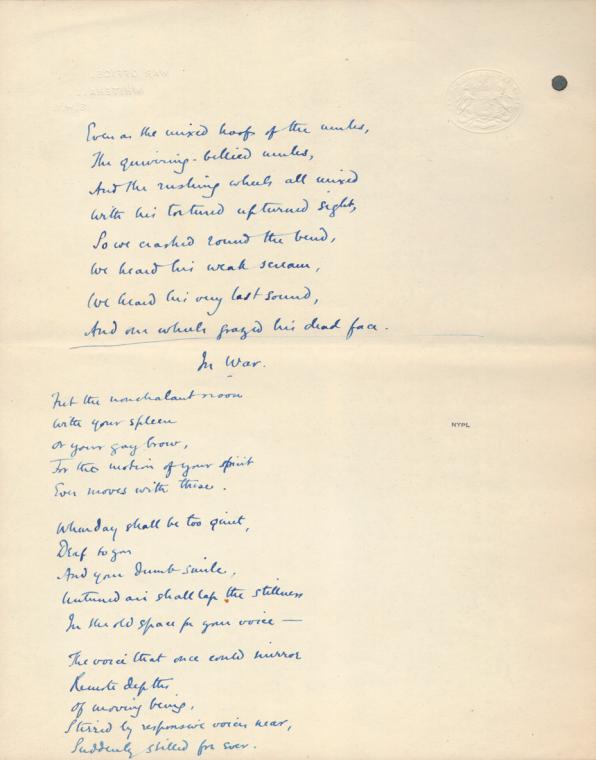 WAR OFFICE,
WHITEHALL,
S.W.
Even as the mixed hoofs of the mules,
The quivering-bellied mules,
And the rushing wheels all mixed
With his tortured upturned sight,
So we crashed round the bend,
We heard his weak scream,
We heard his very last sound,
And our wheels grazed his dead face.
In War.
Fret the nonchalant noon
With your spleen
Or your gay brow,
For the motion of your spirit
Ever moves with these.
NYPL
When day shall be too quiet,
Deaf to you
And your dumb smile,
Untuned air shall lap the stillness
In the old space for your voice —
The voice that once could mirror
Remote depths
Of moving being,
Stirred by responsive voices near,
Suddenly stilled for ever.